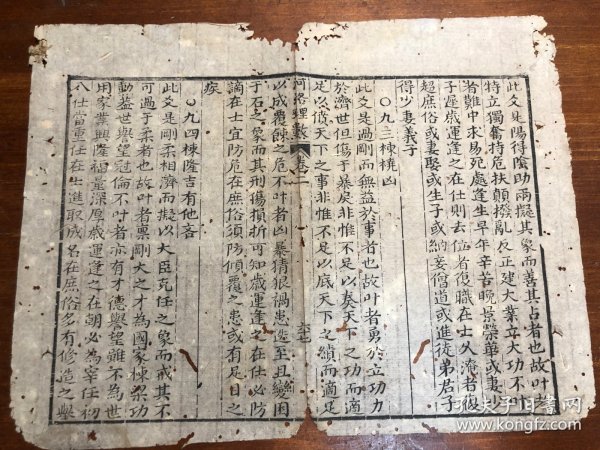 此爻是陽得陰助兩擬其象而善其占者也故叶者
特立獨奮持危扶顛撥亂反正建大業立大功不叶
者難中求易死處逢生早年辛苦晚景榮華或妻少
子遲歲運逢之在仕則去位者復職在士久淹者復
超庶俗或妻娶或生子或納妾僧道或進徒弟居子
得少妻義子
○九三棟橈凶
此爻是過剛而無益於事者也故叶者勇於立功力
於濟世但傷于暴戾非惟不足以奏天下之功而適
足以僨天下之事非惟不足以底天下之績而適足
河洛理數 卷二 六七
以成覆餗之危不叶者凶暴猜狠禍患迭至且變困
于石之象而其刑傷損折可知歲運逢之在仕必防
謫在士宜防危在庶俗須防傾覆之患或有足目之
疾
○九四棟隆吉有他吝
此爻是剛柔相濟而擬以大臣克任之象而戒其不
可過于柔者也故叶者稟剛大之才為國家棟梁功
動蓋世譽望冠倫不叶者亦有才德譽望雖不為世
用家業興隆福量深厚歲運逢之在朝必為宰任初
入仕當重任在士進取成名在庶俗多有修造之舉
孔夫子旧书网